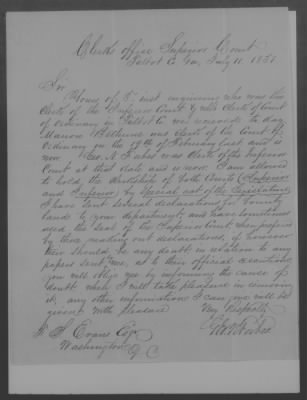 Clerks office Superior Court
Talbot Co Ga, July 11 1851
Sir
Yours of 5th inst enquiring who was the
Clerk of the Superior Court & who Clerk of Court
of Ordinary in Talbot Co was received to day
Marion Bethune was Clerk of the Court of
Ordinary on the 19th of February last and is
now. Geo. N. Forbes was Clerk of the Superior
Court at that date and is now. I am allowed
to hold the Clerkship of both Courts (Superior
and Inferior) by special act of the Legislature
I have sent several declarations for bounty
lands to your department, and have sometimes
used the seal of the Superior Court when
by there making out declarations, if however
there should be any doubt in relation to any
papers sent me, as to their official execution
you will oblige me by informing the cause of
doubt when I will take pleasure in removing
it, any other information I can give will be
given with pleasure
Very Respectfully
W. S. Evans Esqr
Washington
D. C.